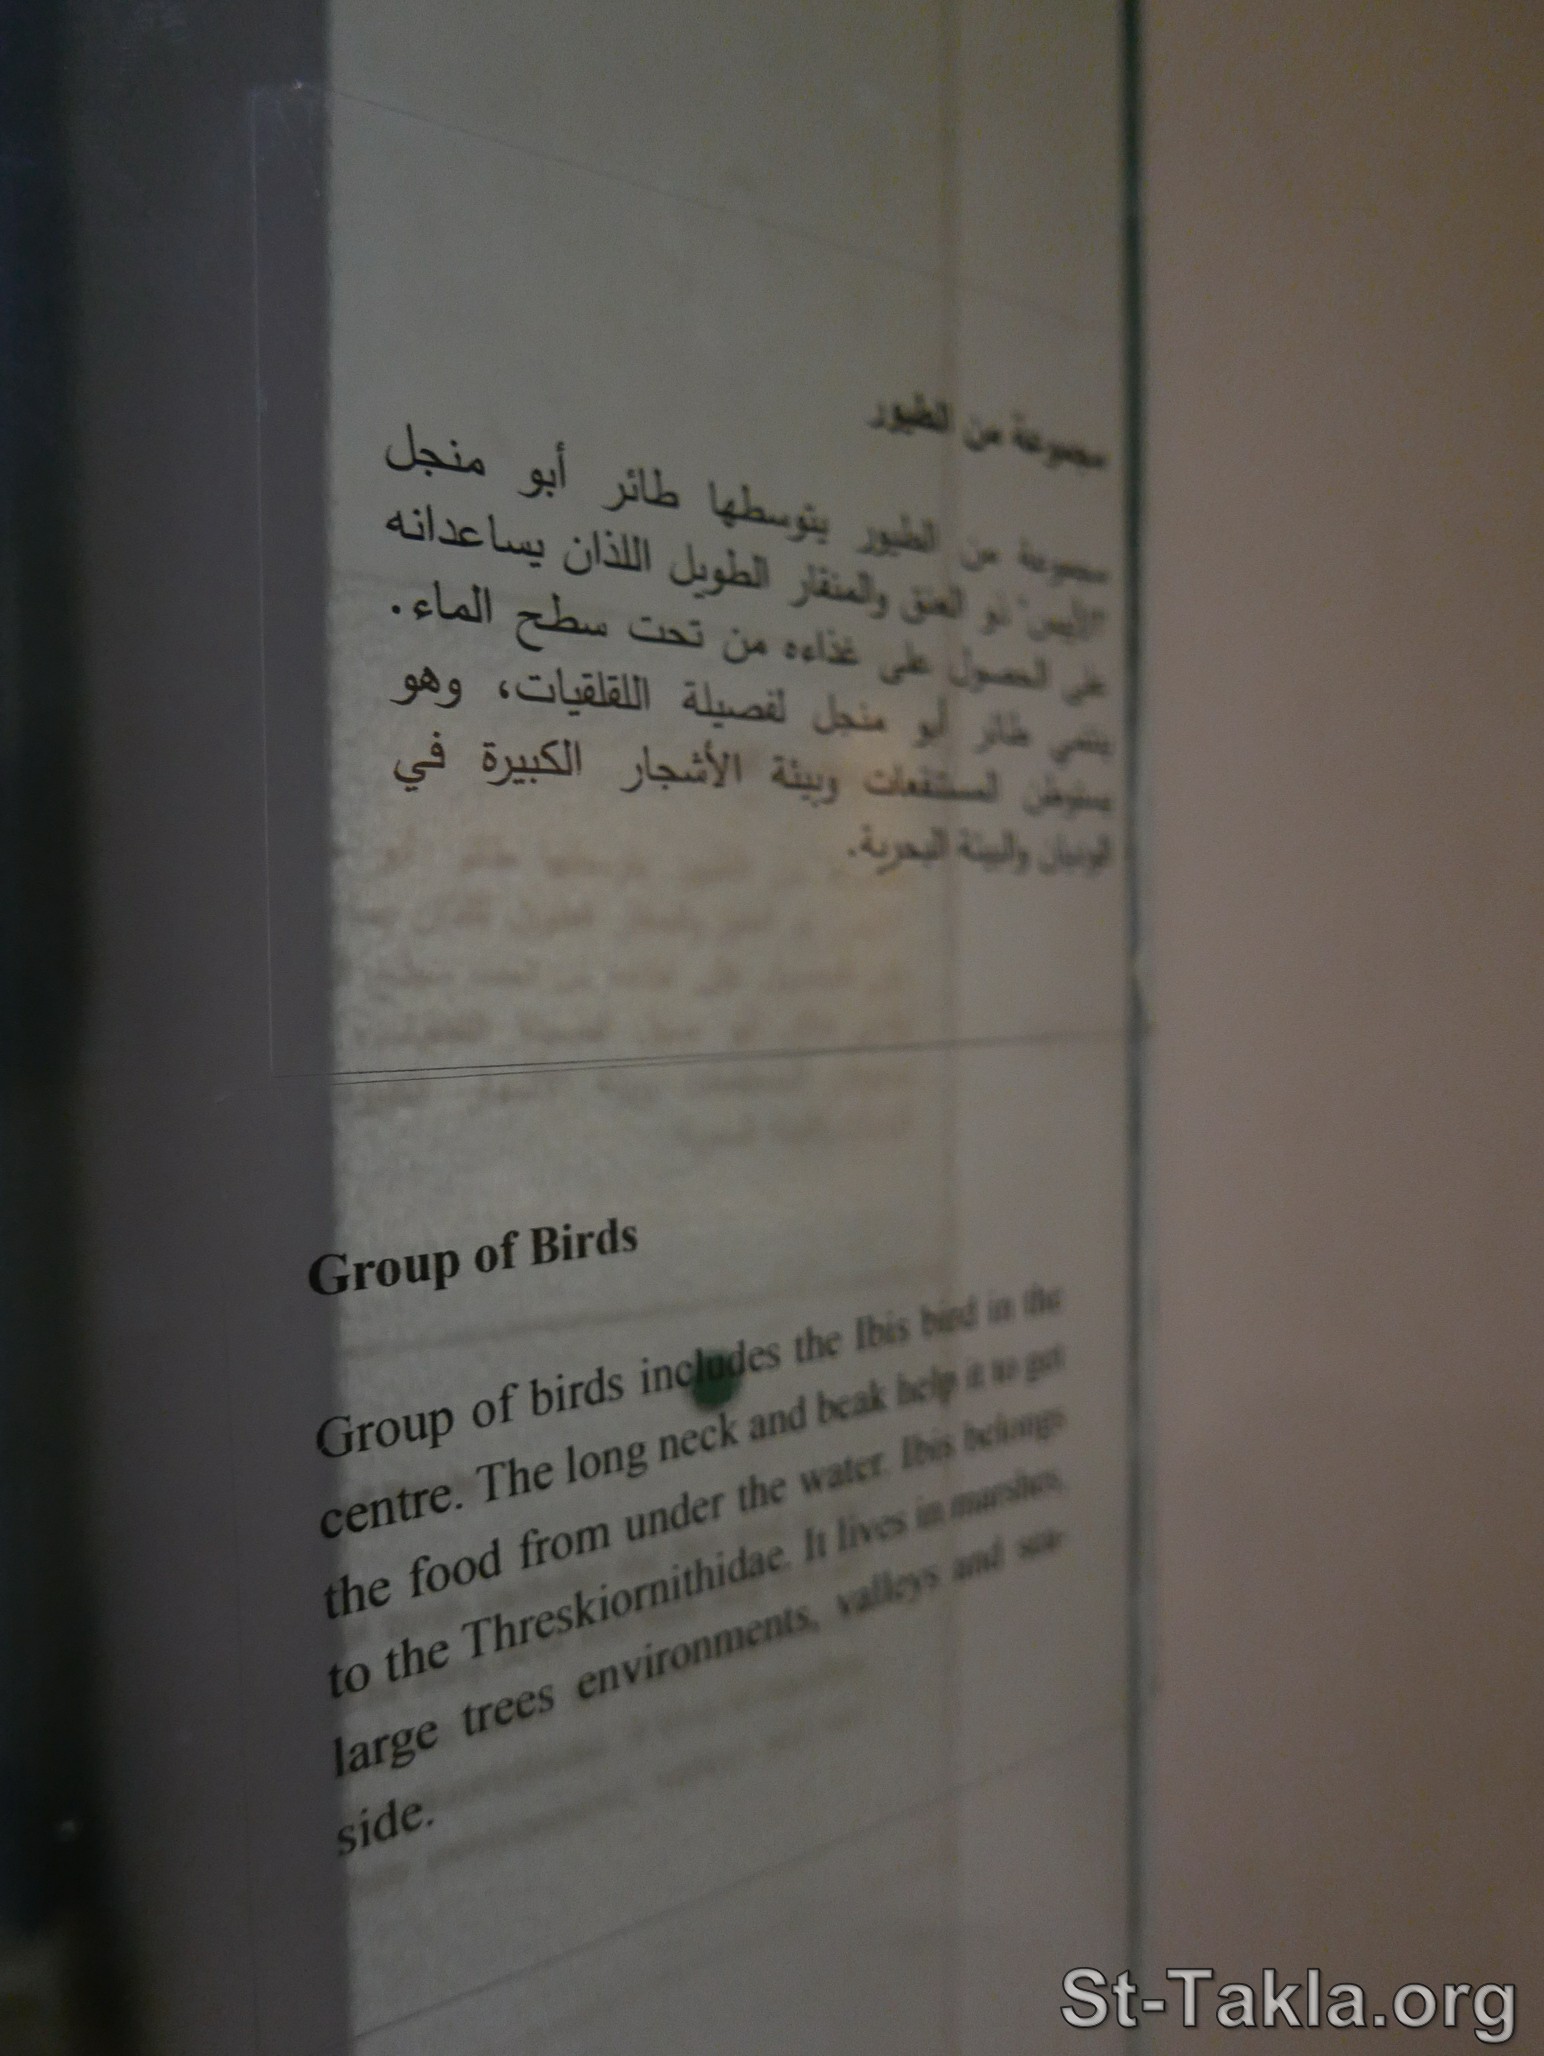 مجموعة من الطيور
مجموعة من الطيور يتوسطها طائر أبو منجل
"الأيبس" ذو العنق والمنقار الطويل اللذان يساعدانه
على الحصول على غذاءه من تحت سطح الماء.
ينتمي طائر أبو منجل لفصيلة اللقلقيات، وهو
يستوطن المستنقعات وبيئة الأشجار الكبيرة في
الوديان والبيئة البحرية.
Group of Birds
Group of birds includes the Ibis bird in the
centre. The long neck and beak help it to get
the food from under the water. Ibis belongs
to the Threskiornithidae. It lives in marshes,
large trees environments, valleys and sea-
side.
St-Takla.org